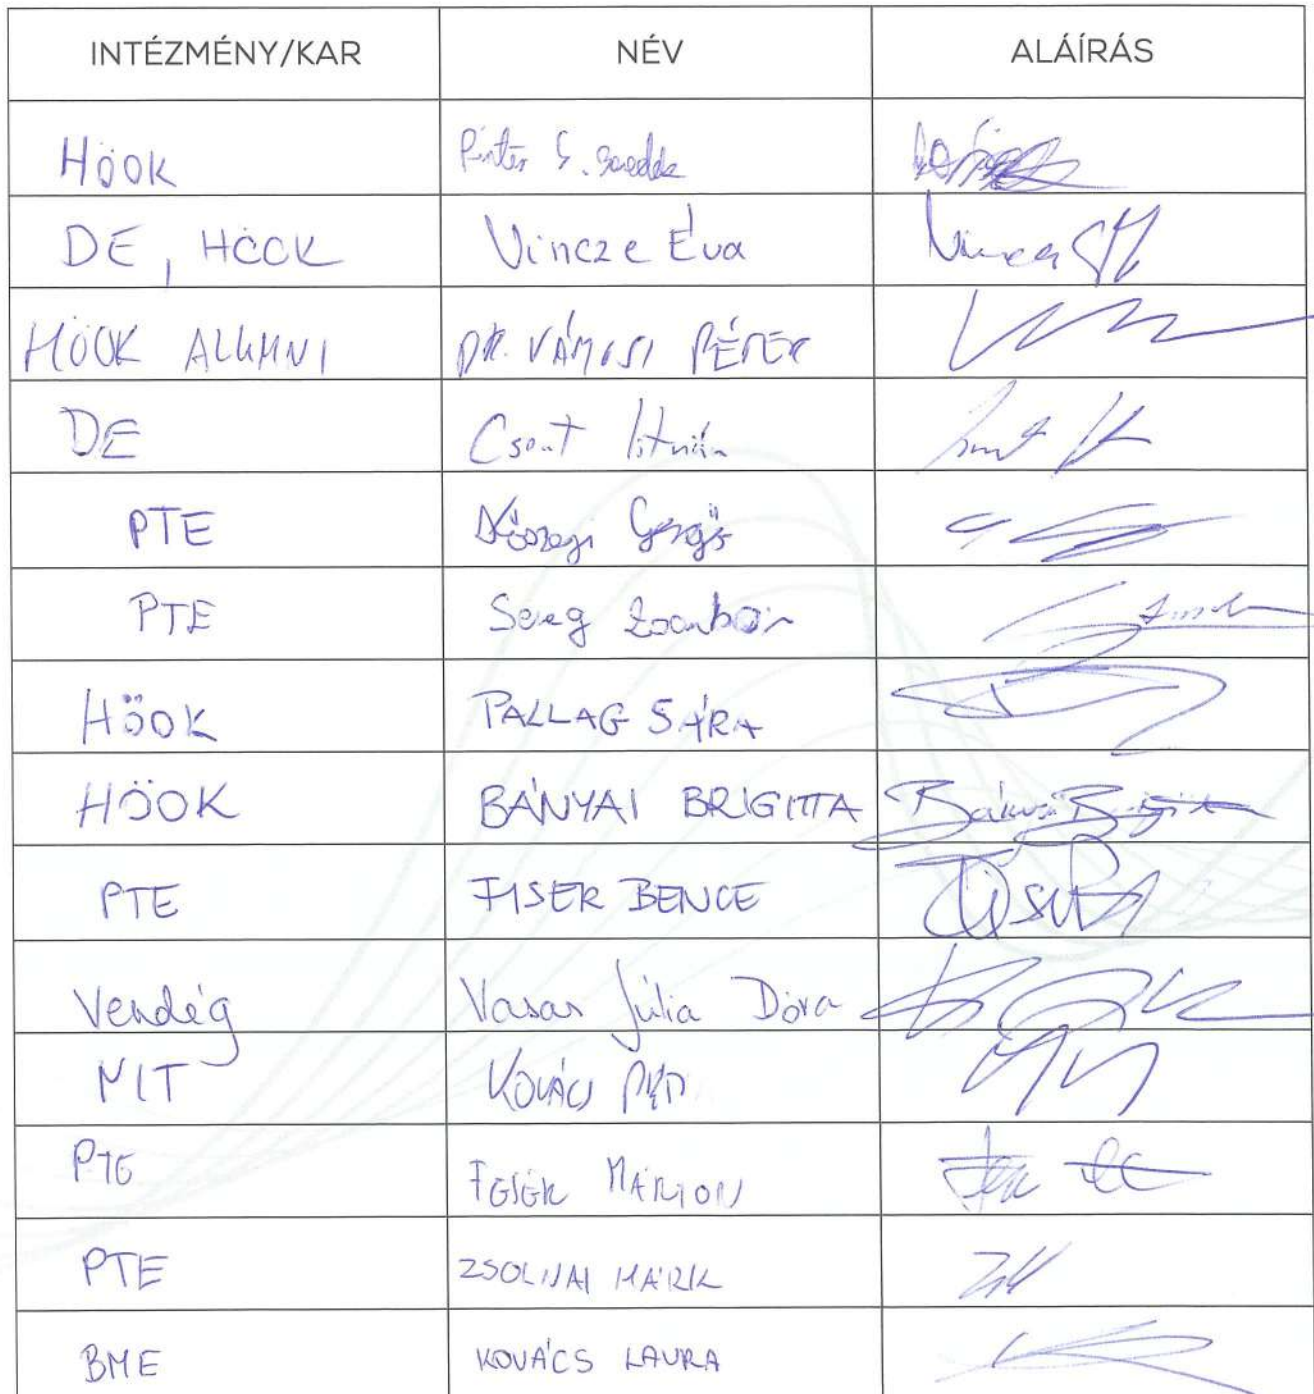 INTÉZMÉNY/KAR NÉV ALÁÍRÁS
HÖOK Pintér S.
DE, HÖOK Vincze Éva Vincze
HÖOK ALUMNI DR. VÁMOSI PÉTER
DE Csont István
PTE Kőszegi Gergő
PTE Sereg Zsombor
HÖOK PALLAG SÁRA
HÖOK BÁNYAI BRIGITTA Bányai Brigitta
PTE FISER BENCE
Vendég Vasas Júlia Dóra
KOVÁCS
PTE FESÉK MÁRTON
PTE ZSOLNAI MÁRK
BME KOVÁCS LAURA